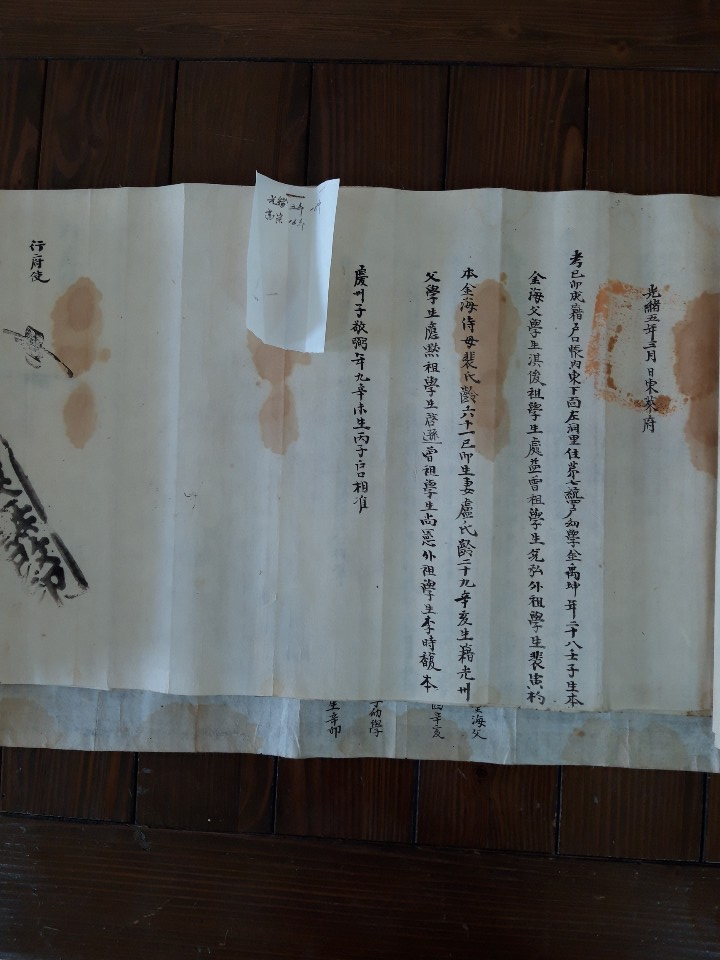 光緖五年三月 日東萊府
考己卯成籍戶口帳內東下面左洞里住第七統 戶幼學金禹坤年二十八壬子生本
金海父學生淇俊祖學生處益曾祖學生 弘外祖學生裴寅杓
本金海侍母裴氏齡六十一己卯生妻盧氏齡二十九辛亥生籍光州
父學生應 祖學生啓遜曾祖學生尙愚外祖學生李時馥本
慶州子敬弼年九辛未生丙子戶口相准
行府使
光緖 五年
高宗 16年
金海父
辛亥
子幼學
生辛卯